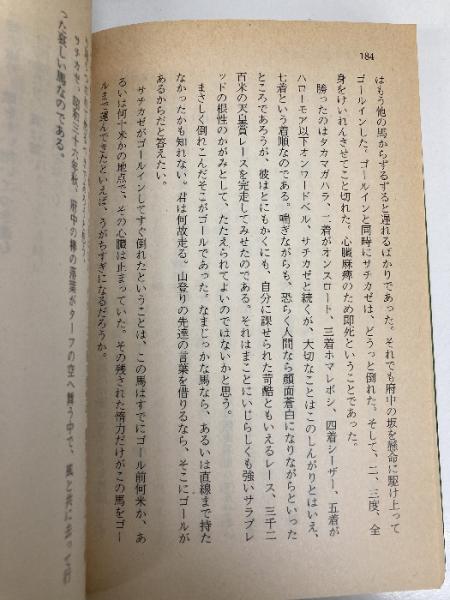 184
はもう他の馬からずるずると遅れるばかりであった。それでも府中の坂を懸命に駆け上って
ゴールインした。ゴールインと同時にサチカゼは、どうっと倒れた。そして、二、三度、全
身をけいれんさせてこと切れた。心臓麻痺のため即死ということであった。
勝ったのはタカマガハラ、二着がオンスロート、三着ホマレボシ、四着シーザー、五着が
ハローモア以下オンワードベル、サチカゼと続くが、大切なことはこのしんがりとはいえ、
七着という着順なのである。喘ぎながらも、恐らく人間なら顔面蒼白になりながらといった
ところであろうが、彼はとにもかくにも、自分に課せられた苛酷ともいえるレース、三千二
百米の天皇賞レースを完走してみせたのである。それはまことにいじらしくも強いサラブレ
ッドの根性のかがみとして、たたえられてよいのではないかと思う。
まさしく倒れこんだそこがゴールであった。なまじっかな馬なら、あるいは直線まで持た
なかったかも知れない。君は何故走る。山登りの先達の言葉を借りるなら、そこにゴールが
あるからだと答えたい。
サチカゼがゴールインしてすぐ倒れたということは、この馬はすでにゴール前何米か、あ
るいは何十米かの地点で、その心臓は止まっていた。その残された惰力だけがこの馬をゴー
ルまで運んできたといえば、うがちすぎになるだろうか。
サチカゼ、昭和三十六年秋、府中の欅の落葉がターフの空へ舞う中で、風と共に去って行
った哀しい馬なのである。